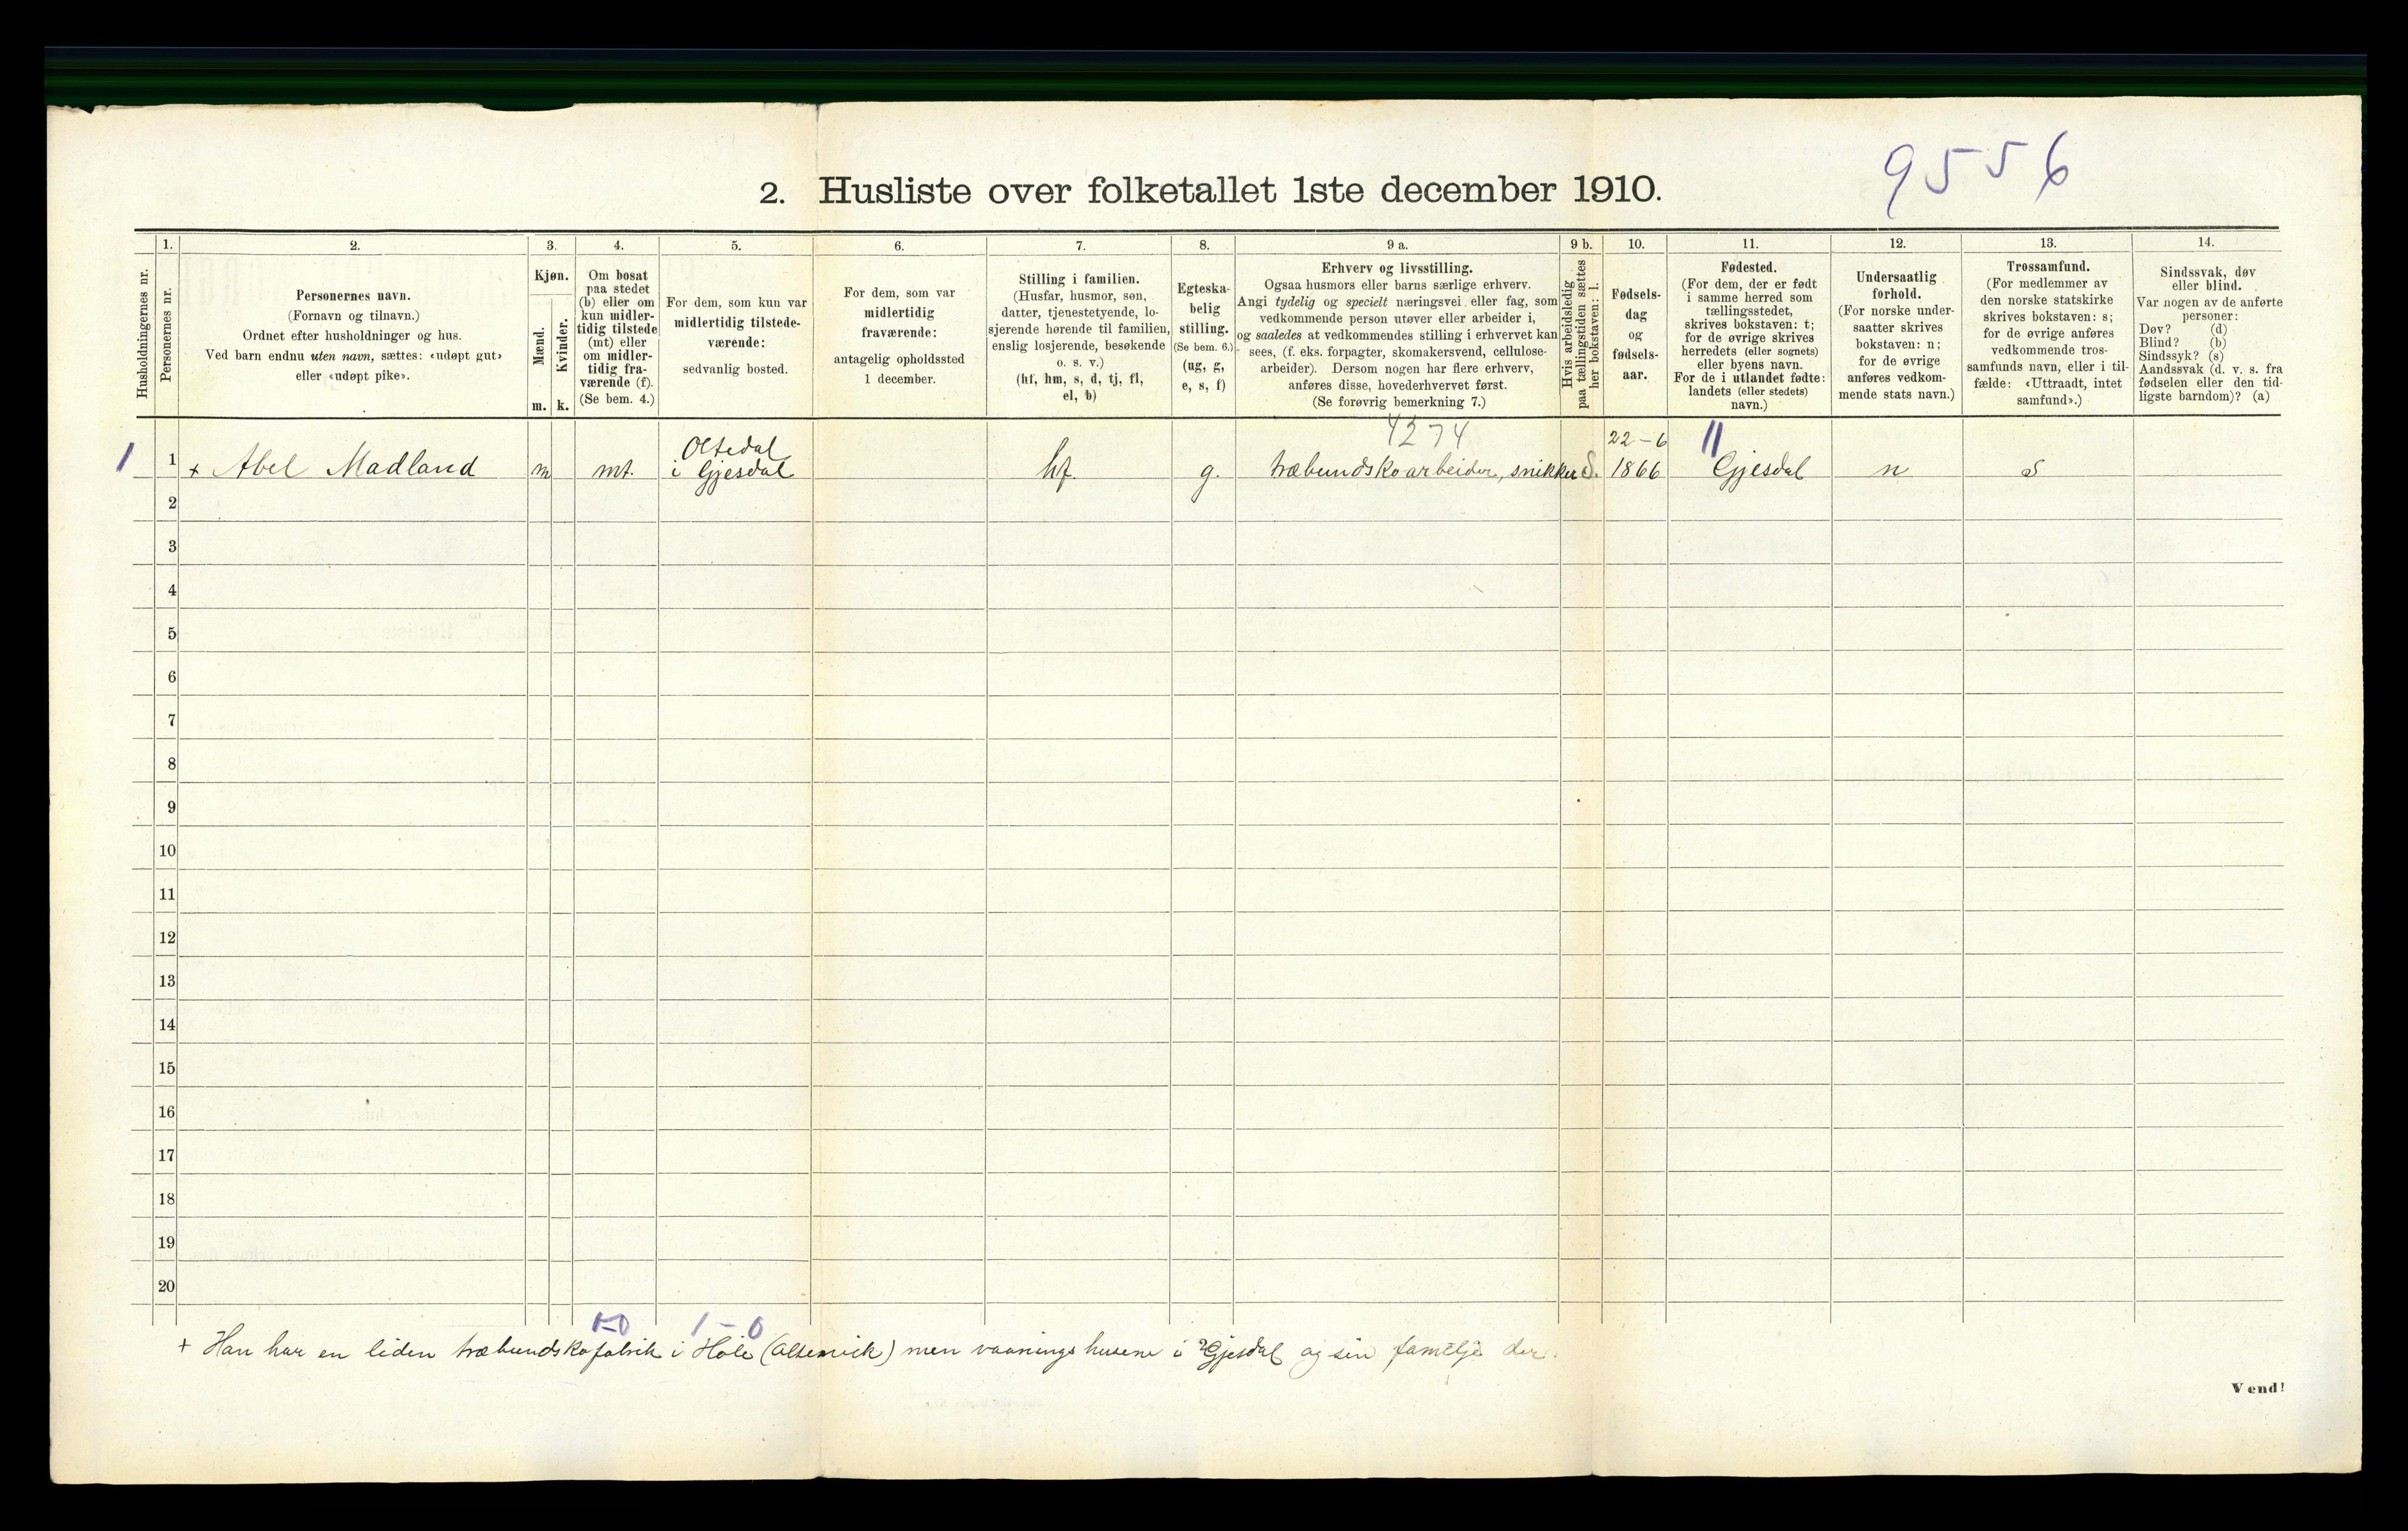 9556
2. Husliste over folketallet 1ste december 1910.
Husholdningernes nr.
1.
Personernes nr.
2.
Personernes navn.
(Fornavn og tilnavn.)
Ordnet efter husholdninger og hus.
Ved barn endnu uten navn, sættes: «udøpt gut»
eller «udøpt pike».
3.
Kjøn.
Mænd.
Kvinder.
m. k.
4.
Om bosat
paa stedet
(b) eller om
kun midler-
tidig tilstede
(mt) eller
om midler-
tidig fra-
værende (f).
(Se bem. 4.)
5.
For dem, som kun var
midlertidig tilstede-
værende:
sedvanlig bosted.
6.
For dem, som var
midlertidig
fraværende:
antagelig opholdssted
1 december.
7.
Stilling i familien.
(Husfar, husmor, søn,
datter, tjenestetyende, lo-
sjerende hørende til familien,
enslig losjerende, besøkende
o. s. v.)
(hf, hm, s, d, tj, fl,
el, b)
8.
Egteska-
belig
stilling.
(Se bem. 6.)
(ug, g,
e, s, f)
9 a.
Erhverv og livsstilling.
Ogsaa husmors eller barns særlige erhverv.
Angi tydelig og specielt næringsvei eller fag, som
vedkommende person utøver eller arbeider i,
og saaledes at vedkommendes stilling i erhvervet kan
sees, (f. eks. forpagter, skomakersvend, cellulose-
arbeider). Dersom nogen har flere erhverv,
anføres disse, hovederhvervet først.
(Se forøvrig bemerkning 7.)
9 b.
Hvis arbeidsledig
paa tællingstiden sættes
her bokstaven: l.
10.
Fødsels-
dag
og
fødsels-
aar.
11.
Fødested.
(For dem, der er født
i samme herred som
tællingsstedet,
skrives bokstaven: t;
for de øvrige skrives
herredets (eller sognets)
eller byens navn.
For de i utlandet fødte:
landets (eller stedets)
navn.)
12.
Undersaatlig
forhold.
(For norske under-
saatter skrives
bokstaven: n;
for de øvrige
anføres vedkom-
mende stats navn.)
13.
Trossamfund.
(For medlemmer av
den norske statskirke
skrives bokstaven: s;
for de øvrige anføres
vedkommende tros-
samfunds navn, eller i til-
fælde: «Uttraadt, intet
samfund».)
14.
Sindssvak, døv
eller blind.
Var nogen av de anførte
personer:
Døv? (d)
Blind? (b)
Sindssyk? (s)
Aandssvak (d. v. s. fra
fødselen eller den tid-
ligste barndom)? (a)
Oltedal 4274 22-6 11
1 1 + Abel Madland m mt. i Gjesdal hf. g. træbundskoarbeider, snikker S. 1866 Gjesdal n s
2
3
4
5
6
7
8
9
10
11
12
13
14
15
16
17
18
19
20
1-0 1-0
+ Han har en liden træbundskofabrik i Høle (Oltesvick) men vaaningshusene i Gjesdal og sin familje der.
Vend!